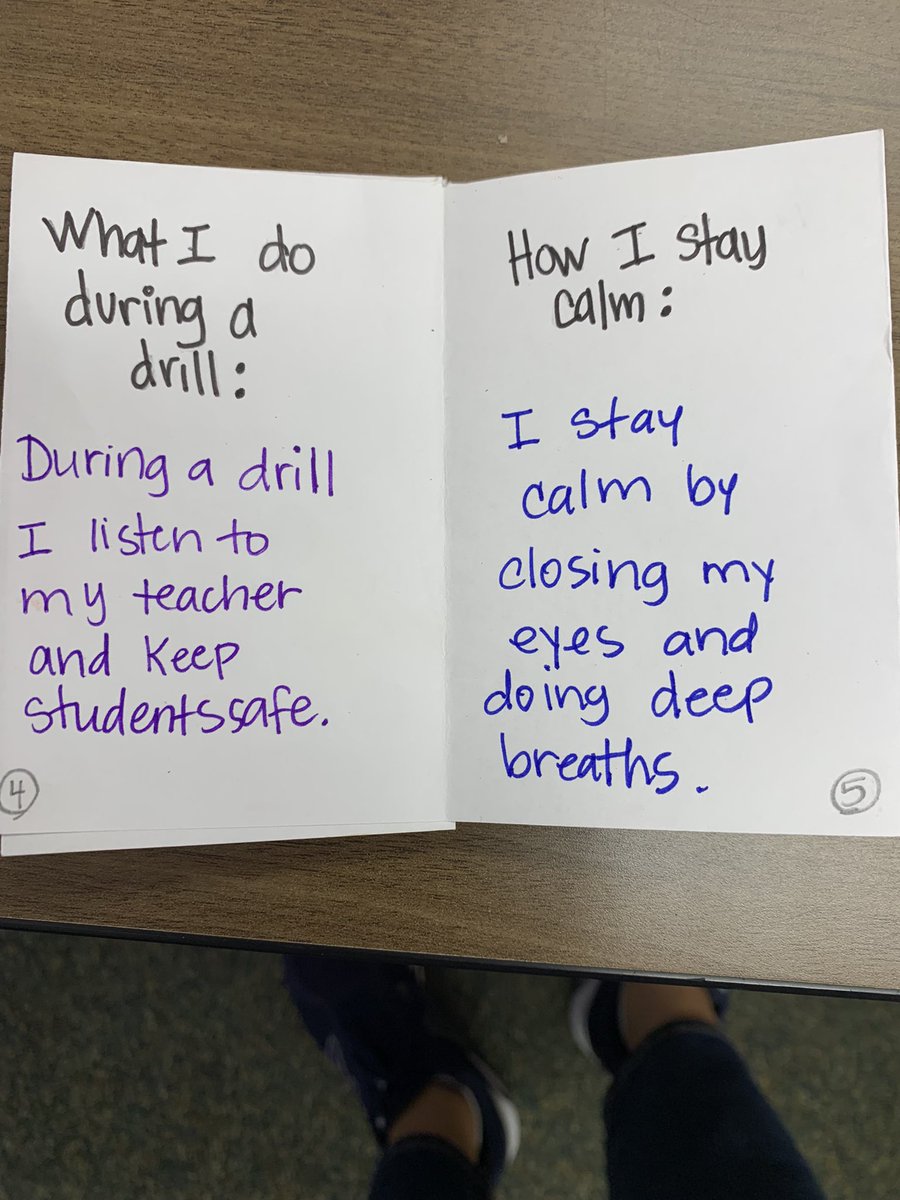 What I do
during a
drill:
During a drill
I listen to
my teacher
and keep
students safe.
4
How I stay
calm:
I stay
calm by
closing my
eyes and
doing deep
breaths.
5